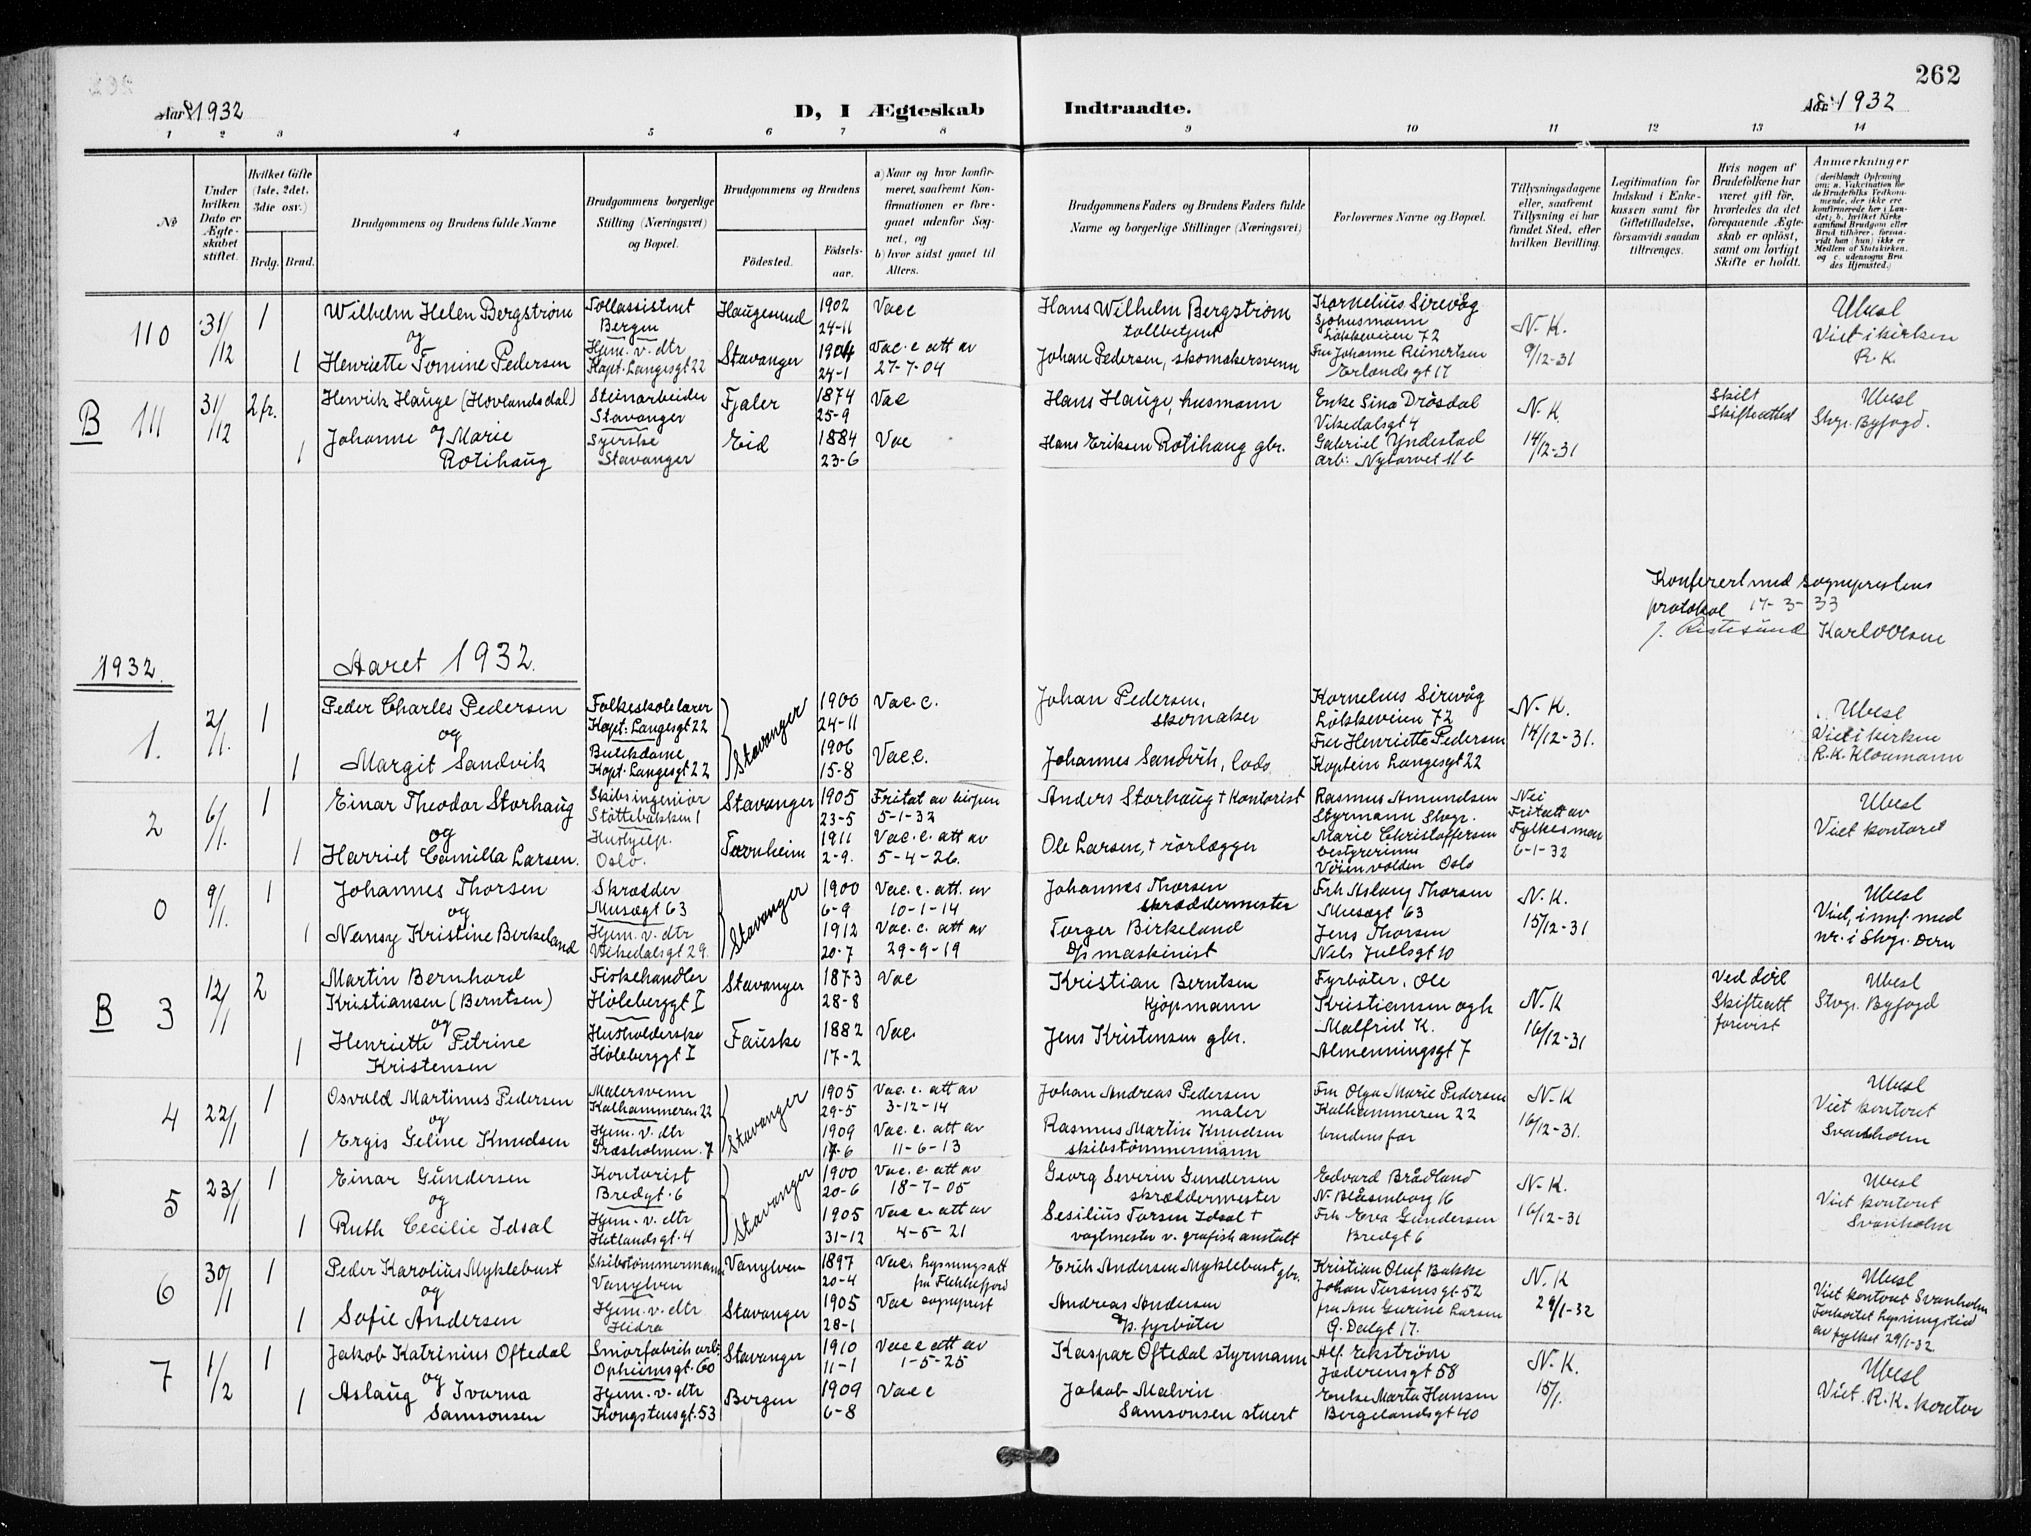 262
Aar 1932
D, I Ægteskab
Indtraadte.
Aar 1932
1 2 3 4 5 6 7 8 9 10 11 12 13 14
No
Under hvilken Dato er Ægteskabet stiftet.
Hvilket Gifte (1ste, 2det, 3die osv.)
Brdg. Brud.
Brudgommens og Brudens fulde Navne
Brudgommens borgerlige Stilling (Næringsvei) og Bopæl.
Brudgommens og Brudens
Fødested.
Fødselsaar.
a) Naar og hvor konfirmeret, saafremt Konfirmationen er foregaaet udenfor Sognet, og
b) hvor sidst gaaet til Alters.
Brudgommens Faders og Brudens Faders fulde Navne og borgerlige Stillinger (Næringsvei)
Forlovernes Navne og Bopæl.
Tillysningsdagene eller, saafremt Tillysning ei har fundet Sted, efter hvilken Bevilling.
Legitimation for Indskud i Enkekassen samt for Giftetilladelse, forsaavidt saadan tiltrænges.
Hvis nogen af Brudefolkene har været gift før, hvorledes da det foregaaende Ægteskab er opløst, samt om lovligt Skifte er holdt.
Anmærkninger
(deriblandt Oplysning om: a. Vakcination for de Brudefolks Vedkommende, der ikke ere konfirmerede her i Landet; b. hvilket Kirkesamfund Brudgom eller Brud tilhører, forsaavidt han (hun) ikke er Medlem af Statskirken, og c. udensogns Brudes Hjemsted.)
110 31/12 1 Wilhelm Helen Bergstrøm Tollassistent Bergen Haugesund 1902 24-11 Vacc Hans Wilhelm Bergstrøm tollbetjent Kornelius Sirevåg Sjøhusmann Løkkeveien 72 N.K. 9/12-31 Ubesl Viet i kirken R.K.
og
1 Henriette Tomine Pedersen Hjem. v. dtr Kapt. Langesgt 22 Stavanger 1904 24-1 Vac. e att av 27-7-04 Johan Pedersen, skomakersvenn Fru Johanne Reinertsen Erlandsgt 17
B 111 31/12 2 fr. Henrik Hauge (Hovlandsdal) Steinarbeider Stavanger Fjaler 1874 25-9 Vac Hans Hauge, husmann Enke Sina Drøsdal Vikedalsgt 4 N.K. 14/12-31 Skilt Skifteattest Ubesl Stvgr. Byfogd.
og
1 Johanne Marie Rotihaug Syerske Stavanger Eid 1884 23-6 Vac Hans Eriksen Rotihaug gbr. Gabriel Yndestad arb. Nytorvet 11 b
Konferert med sogneprestens
protokol 17-3-33
Karl Olsen
1932. Aaret 1932.
1. 2/1. 1 Peder Charles Pedersen Folkeskolelærer Kapt. Langesgt 22 Stavanger 1900 24-11 Vac. c. Johan Pedersen, skomaker Kornelius Sirevåg Løkkeveien 72 N.K. 14/12-31. Ubesl Viet i kirken R.K. Kloumann
og
1 Margit Sandvik Butikdame Kapt. Langesgt 22 1906 15-8 Vac.c. Johannes Sandvik, lods Fru Henriette Pedersen Kaptein Langesgt 22
2 6/1. 1 Einar Theodor Storhaug Skibsingeniør Støttebakken 1 Stavanger 1905 23-5 Fritat av bispen 5-1-32 Anders Storhaug † Kontorist Rasmus Amundsen Styrmann Stvgr. Nei Fritatt av Fylkesman 6-1-32 Ubesl Viet kontoret
og
1 Harriet Camilla Larsen. Hushjelp. Oslo. 1911 2-9. Vac. c. att av 5-4-26. Ole Larsen, † rørlægger Marie Christoffersen bestyrerinne Oslo
0 9/1. 1 Johannes Thorsen Skrædder Musægt 63 Stavanger 1900 6-9 Vac. c. att. av 10-1-14 Johannes Thorsen skræddermester Frk Aslaug Thorsen Musægt 63 N.K. 15/12-31 Ubesl Viet, innf. med nr. i Stvgr. Dom
og
1 Nansy Kristine Birkeland Hjem. v. dtr Vikedalsgt 29. 1912 20-7 Vac. c. att av 29-9-19 Torger Birkeland maskinist Jens Thorsen Nils Juelsgt 10
B 3 12/1 2 Martin Bernhard Kristiansen (Berntsen) Fiskehandler Høleberggt I Stavanger 1873 28-8 Vac Kristian Berntsen kjøpmann Fyrbøter, Ole Kristiansen og h N.K 16/12-31 Ved død Skifteatt forevist Ubesl Stvgr. Byfogd
og
1 Henriette Petrine Kristensen Husholderske Høleberggt I Fauske 1882 17-2 Vac. Jens Kristensen gbr. Malfrid K. Almenningsgt 7
4 22/1 1 Osvald Martinus Pedersen Malersvenn Kalhammeren 22 Stavanger 1905 29-5 Vac. c. att av 3-12-14 Johan Andreas Pedersen maler Fru Olga Marie Pedersen Kalhammeren 22 N.K 16/12-31. Ubesl Viet kontoret Svanholm
og
1 Ergis Geline Knudsen Hjem. v. dtr Græsholmen. 7 1909 17-6 Vac. c. att av 11-6-13 Rasmus Martin Knudsen skibstømmermann brudens far
5 23/1 1 Einar Gundersen Kontorist Bredgt. 6 Stavanger 1900 20-6 Vac. c. att av 18-7-05 Georg Severin Gundersen skræddermester Edvard Brådland N. Blåsenborg 16 N.K. 16/12-31 Ubesl Viet kontoret Svanholm
og
1 Ruth Cecilie Idsal Hjem. v. dtr Hetlandsgt. 4 1905 31-12 Vac c. att av 4-5-21 Sesilius Torsen Idsal † vagtmester v. grafisk anstalt Frk Eva Gundersen Bredgt 6
6 30/1 1 Peder Karolius Myklebust Skibstømmermann Vanylven Vanylven 1897 20-4 Vac. lysningsatt fra Flekkefjord Erik Andersen Myklebust gbr. Kristian Oluf Bakke Johan Torsensgt. 52 N.K 29/1-32 Ubesl Viet kontoret Svanholm Forkortet lysningstid av fylket 29/1-32
og
1 Sofie Andersen Hjem. v. dtr Hidra Stavanger 1905 28-1 Vac sogneprest Andreas Andersen fyrbøter fru Ane Gurine Larsen Ø. Dalgt 17.
7 1/2 1 Jakob Katrinius Oftedal Smørfabrik arb. Opheimsgt. 60 Stavanger 1910 11-1 Vac c att av 1-5-25 Kaspar Oftedal styrmann Alf. Ekstrøm Jæderensgt 58 N.K. 15/1. Ubesl Viet R.K. kontor
og
1 Aslaug Ivarna Samsonsen Hjem. v. dtr Kongstensgt. 53 Bergen 1909 6-8 Vac c Jakob Malvin Samsonsen stuert Enke Marta Hansen Bergelandsgt 40